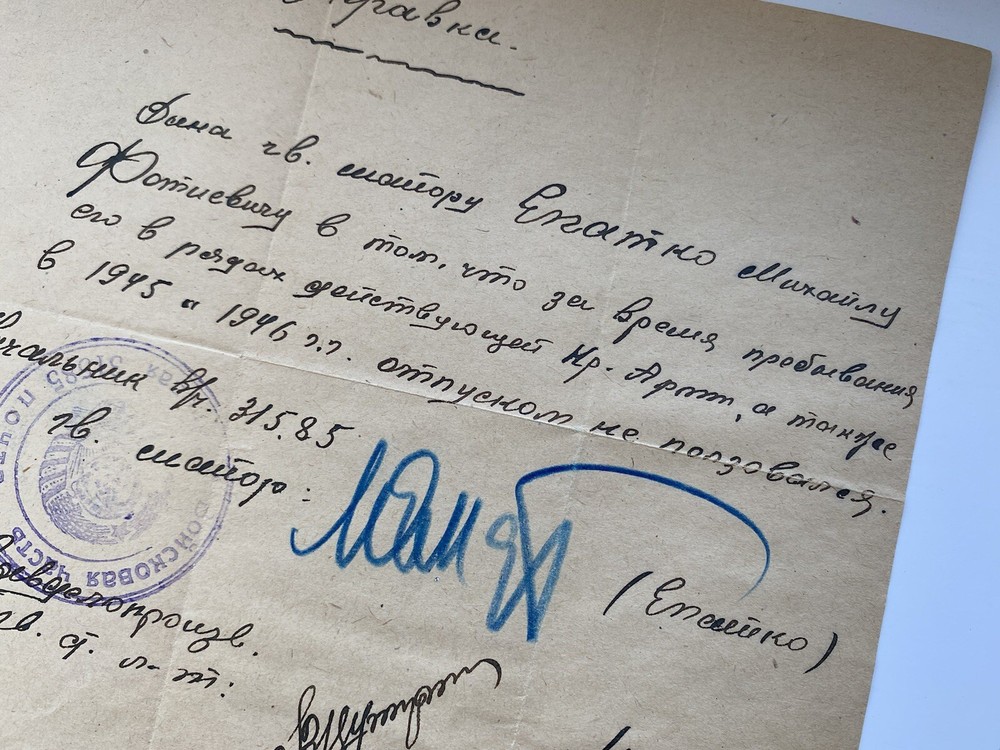 Справка.
Дана гв. майору Епатко Михайлу
Фотиевичу в том, что за время пребывания
его в рядах действующей Кр. Армии, а также
в 1945 и 1946 г.г. отпуском не ползовался.
Начальник в/ч. 31585
гв. майор:
(Епатко)
Завделопроизв.
гв. ст. л-т:
Войсковая часть
почта
31585